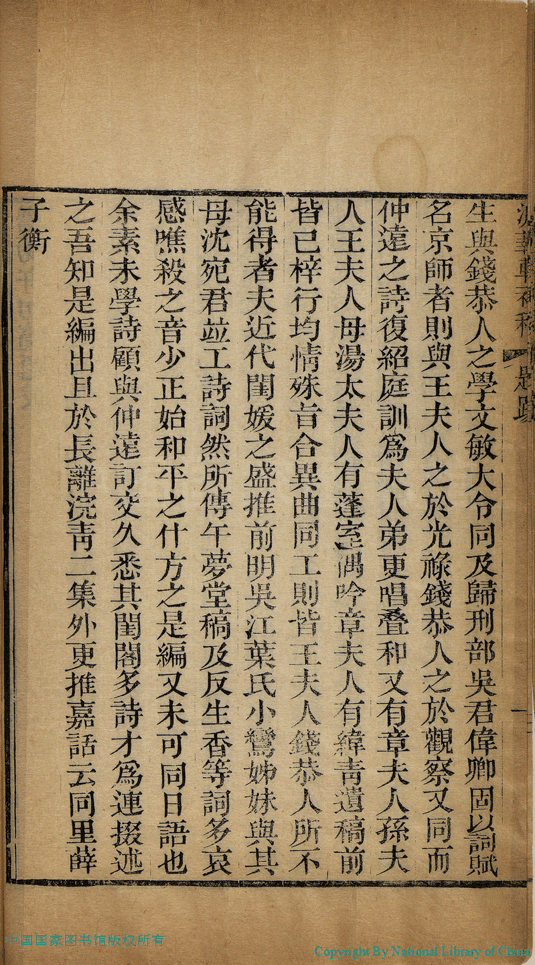 題跋
生與錢恭人之學文敏大令同及歸刑部吳君偉卿固以詞賦
名京師者則與王夫人之於光祿錢恭人之於觀察又同而
仲遠之詩復紹庭訓爲夫人弟更唱叠和又有章夫人孫夫
人王夫人母湯太夫人有蓬室偶吟章夫人有緯青遺稿前
皆已梓行均情殊旨合異曲同工則皆王夫人錢恭人所不
能得者夫近代閨媛之盛推前明吳江葉氏小鸞姊妹與其
母沈宛君竝工詩詞然所傳午夢堂稿及反生香等詞多哀
感噍殺之音少正始和平之什方之是編又未可同日語也
余素未學詩顧與仲遠訂交久悉其閨閣多詩才爲連掇述
之吾知是編出且於長離浣青二集外更推嘉話云同里薛
子衡
中国国家图书馆版权所有
Copyright By National Library of China